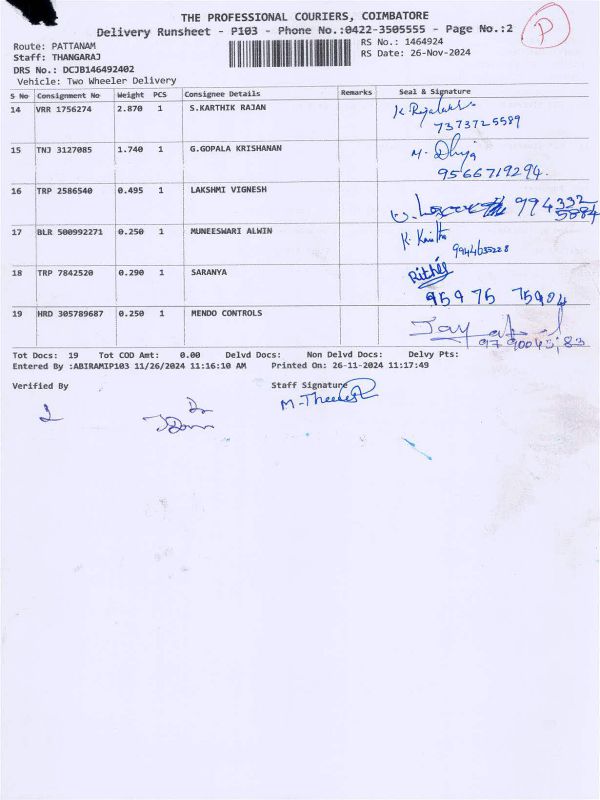 THE PROFESSIONAL COURIERS, COIMBATORE
Delivery Runsheet - P103 - Phone No.:0422-3505555 - Page No.:2
P
Route: PATTANAM
RS No.: 1464924
Staff: THANGARAJ
RS Date: 26-Nov-2024
DRS No.: DCJB146492402
Vehicle: Two Wheeler Delivery
S No Consignment No Weight PCS Consignee Details Remarks Seal & Signature
14 VRR 1756274 2.870 1 S.KARTHIK RAJAN
7373725589
15 TNJ 3127085 1.740 1 G.GOPALA KRISHANAN
9566719294.
16 TRP 2586540 0.495 1 LAKSHMI VIGNESH
17 BLR 500992271 0.250 1 MUNEESWARI ALWIN
9944635228
18 TRP 7842520 0.290 1 SARANYA
19 HRD 305789687 0.250 1 MENDO CONTROLS
Tot Docs: 19 Tot COD Amt: 0.00 Delvd Docs: Non Delvd Docs: Delvy Pts:
Entered By :ABIRAMIP103 11/26/2024 11:16:10 AM Printed On: 26-11-2024 11:17:49
Verified By Staff Signature